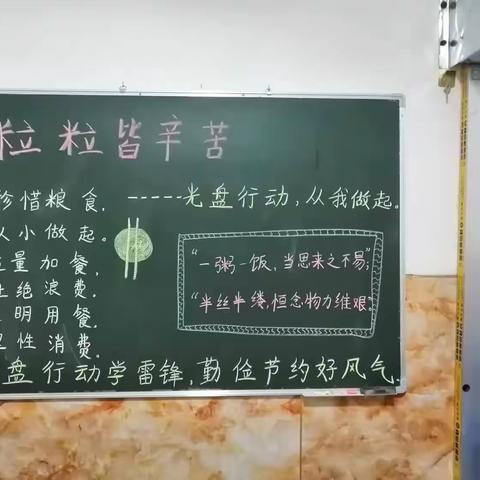 粒粒皆辛苦
珍惜粮食. -----光盘行动,从我做起。
从小做起.
量加餐,
绝浪费.
明用餐.
性消费.
"一粥一饭,当思来之不易;
"半丝半缕,恒念物力维艰。
盘行动学雷锋,勤俭节约好风气.